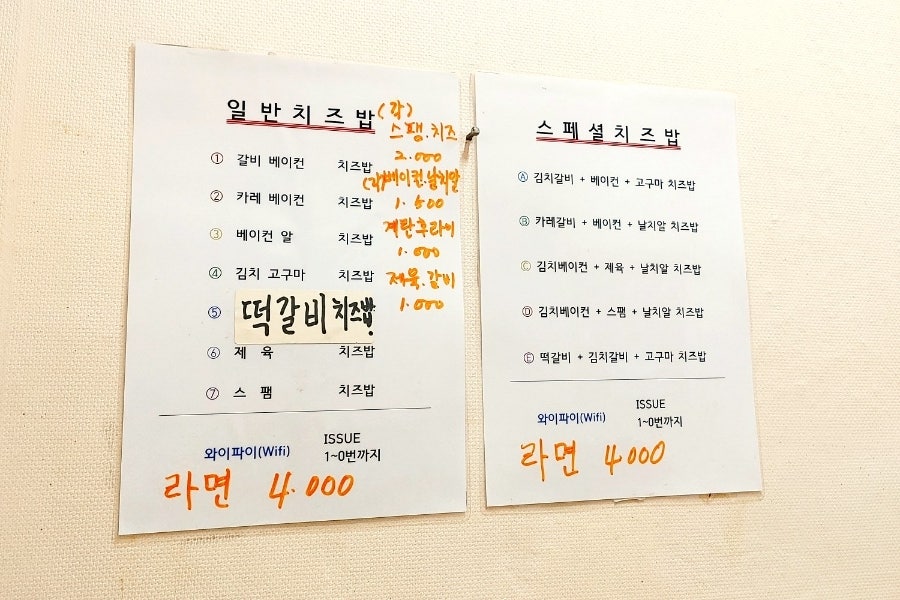 일반치즈밥
(각)
스팸.치즈
2.000
(각)베이컨.날치알
1.500
계란후라이
1.000
제육.갈비
1.000
① 갈비 베이컨 치즈밥
② 카레 베이컨 치즈밥
③ 베이컨 알 치즈밥
④ 김치 고구마 치즈밥
⑤ 떡갈비 치즈밥.
⑥ 제 육 치즈밥
⑦ 스 팸 치즈밥
와이파이(Wifi) ISSUE
1~0번까지
라면 4.000
스페셜치즈밥
Ⓐ 김치갈비 + 베이컨 + 고구마 치즈밥
Ⓑ 카레갈비 + 베이컨 + 날치알 치즈밥
Ⓒ 김치베이컨 + 제육 + 날치알 치즈밥
Ⓓ 김치베이컨 + 스팸 + 날치알 치즈밥
Ⓔ 떡갈비 + 김치갈비 + 고구마 치즈밥
와이파이(Wifi) ISSUE
1~0번까지
라면 4000